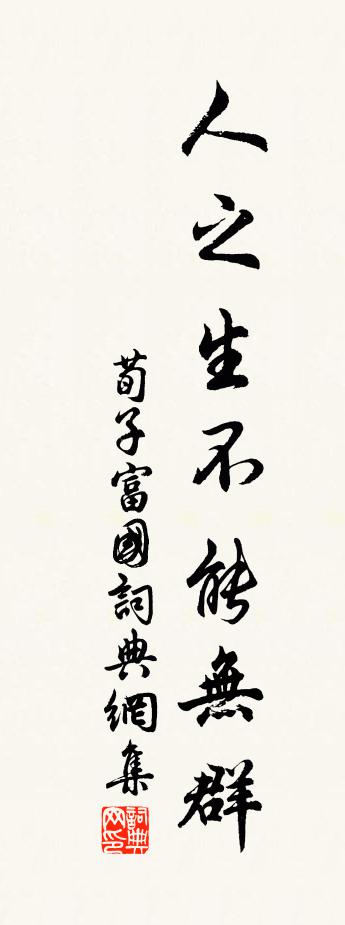 人之生不能無群
荀子富國詞典網集
詞典网印